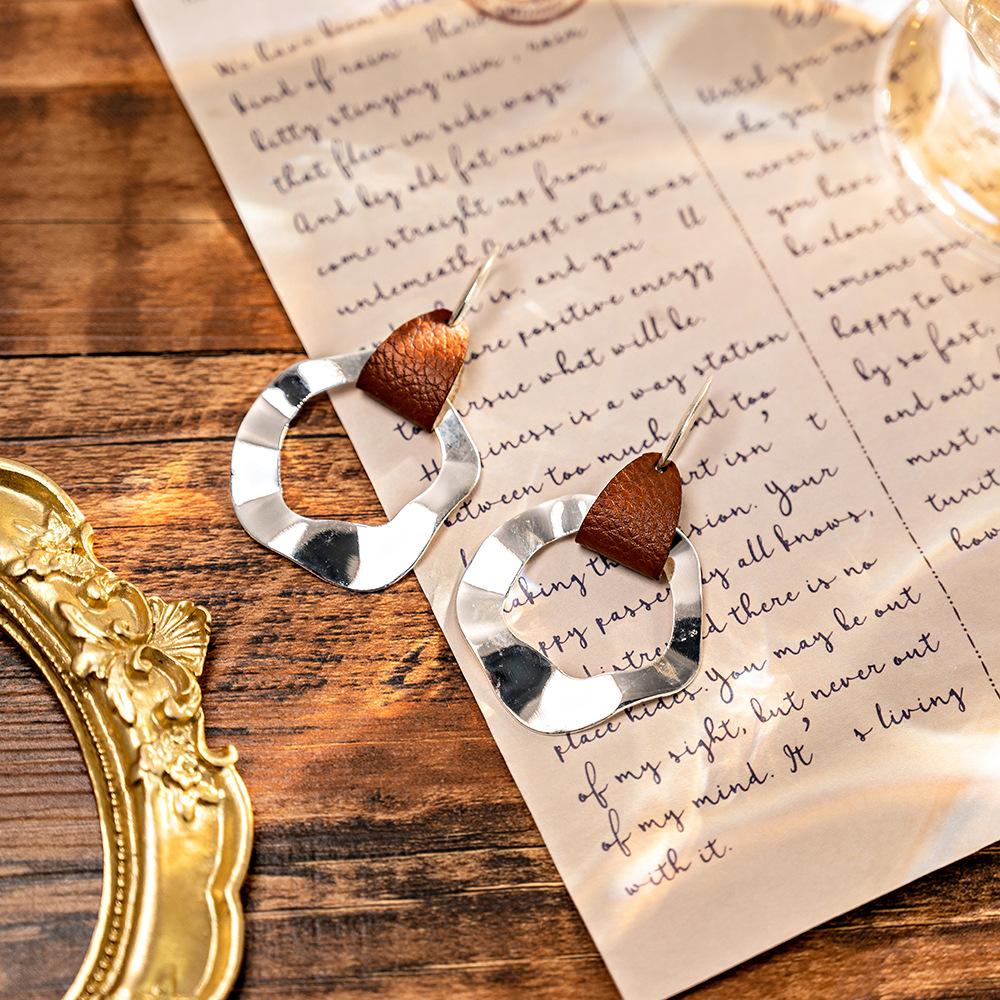 We have been
kind of rain
bitty stinging rain, rain
that flew in side ways
And big old fat rain, to
come straight up from
underneath Accept what was
is, and you ' ll
more positive energy
ursue what will be.
to
H iness is a way station
etween too much nd too
rt isn ' t
l sion. Your
aking th y all knows,
ppy passer d there is no
distre
place hides. You may be out
of my sight, but never out
of my mind. It ' s living
with it.
Until you mak
who you are
never be con
you have
be alone tha
someone you
happy to be
by so fast,
and out o
must n
tunit
how